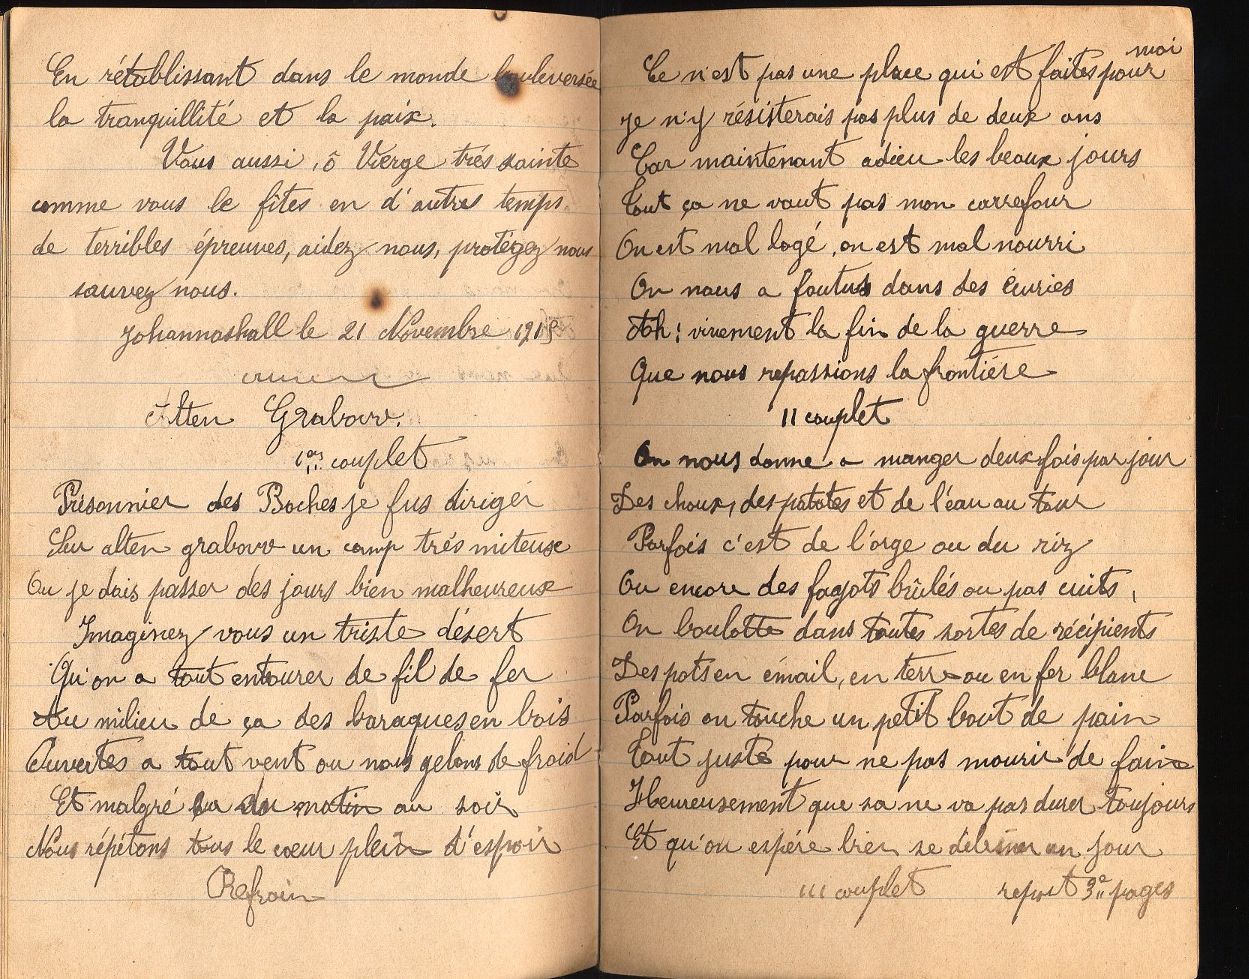 En rétablissant dans le monde bouleversée
la tranquillité et la paix.
Vous aussi, ô Vierge très sainte
comme vous le fîtes en d'autres temps
de terribles épreuves, aidez nous, protégez nous
sauvez nous.
Johannashall le 21 Novembre 191
Alten Grabovv.
1er couplet
Prisonnier des Boches je fus diriger
Sur alten grabovv un camp très miteuse
Ou je dois passer des jours bien malheureux
Imaginez vous un triste désert
Qu'on a tout entourer de fil de fer
Au milieu de ça des baraques en bois
Ouvertes a tout vent ou nous gelons de froid
Et malgré du matin au soir
Nous répétons tous le cœur plein d'espoir
Refrain
Ce n'est pas une place qui est faites pour moi
je n'y résisterais pas plus de deux ans
Car maintenant adieu les beaux jours
Tout ça ne vaut pas mon carrefour
On est mal logé, on est mal nourri
On nous a foutus dans des écuries
Ah! vivement la fin de la guerre
Que nous repassions la frontière
II couplet
On nous donne a manger deux fois par jour
Des choux, des patates et de l'eau au tour
Parfois c'est de l'orge ou du riz
Ou encore des fagots brûlés ou pas cuits,
On boulotte dans toutes sortes de récipients
Des pots en émail, en terre ou en fer blanc
Parfois on touche un petit bout de pain
Tout juste pour ne pas mourir de faim
Heureusement que sa ne va pas durer toujours
Et qu'on espère bien se débiner un jour
III couplet report 3e pages